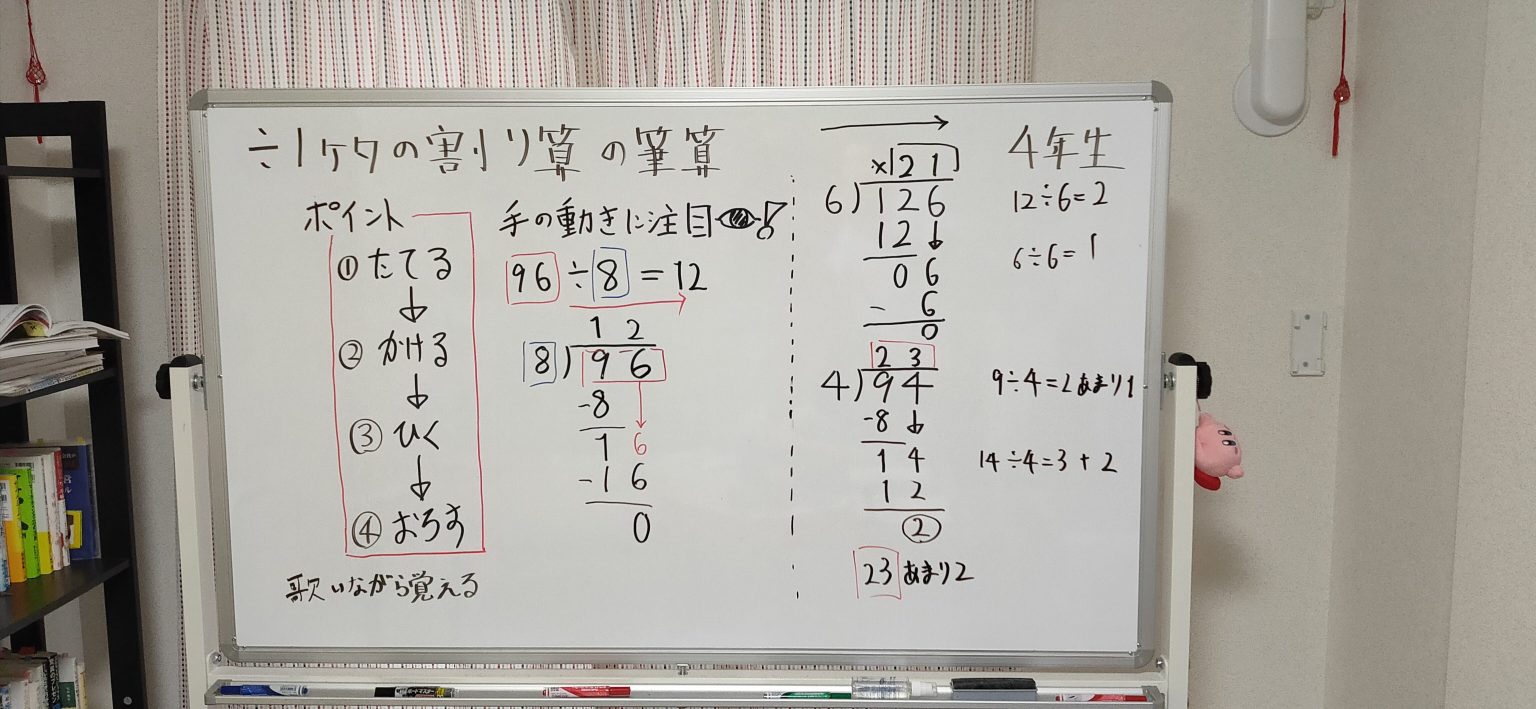 ÷1ケタの割り算の筆算
4年生
ポイント
①たてる
↓
②かける
↓
③ひく
↓
④おろす
歌いながら覚える
手の動きに注目!
96÷8=12
12
8)96
-8
16
-16
0
→
×21
6)126
12↓
06
-6
0
12÷6=2
6÷6=1
23
4)94
-8↓
14
12
②
23あまり2
9÷4=2あまり1
14÷4=3+2